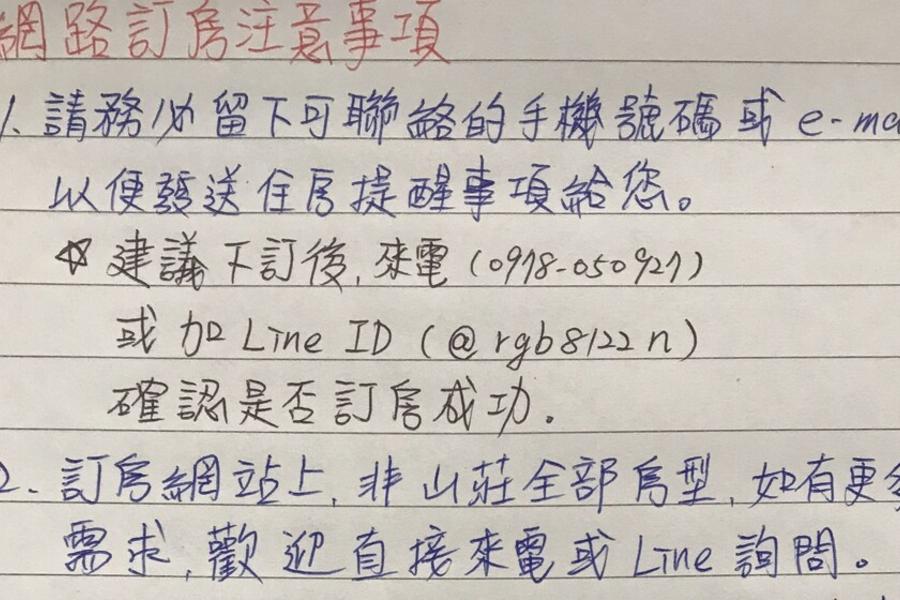 網路訂房注意事項
1. 請務必留下可聯絡的手機號碼或 e-ma
以便發送住房提醒事項給您。
☆ 建議下訂後, 來電 (0978-050927)
或加 Line ID (@rgb8122n)
確認是否訂房成功.
2. 訂房網站上, 非山莊全部房型, 如有更多
需求, 歡迎直接來電或 Line 詢問。